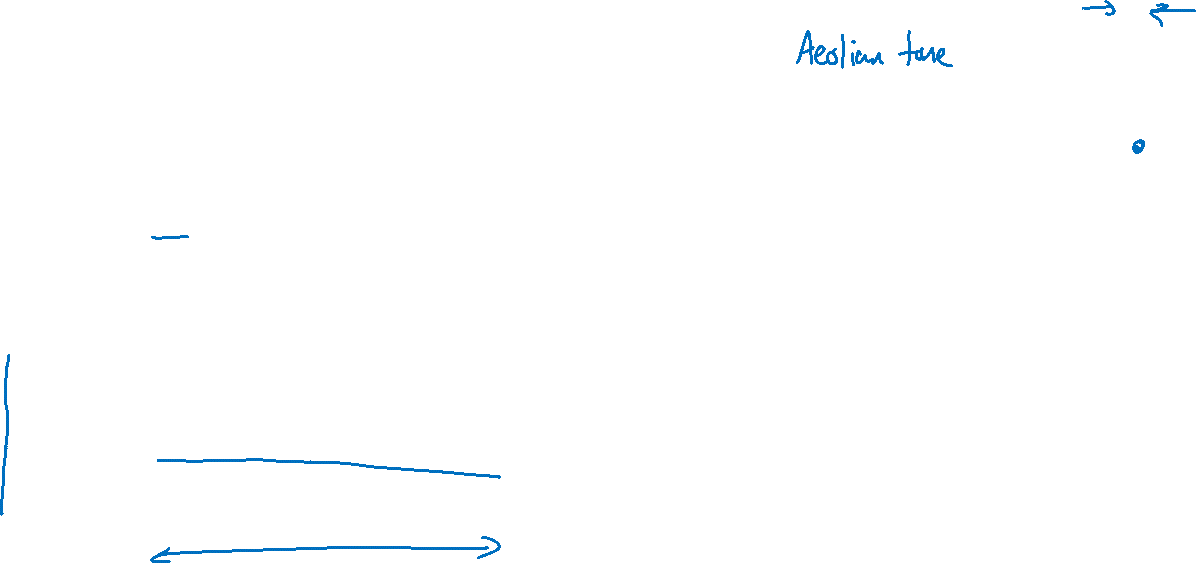 Aeolian tone